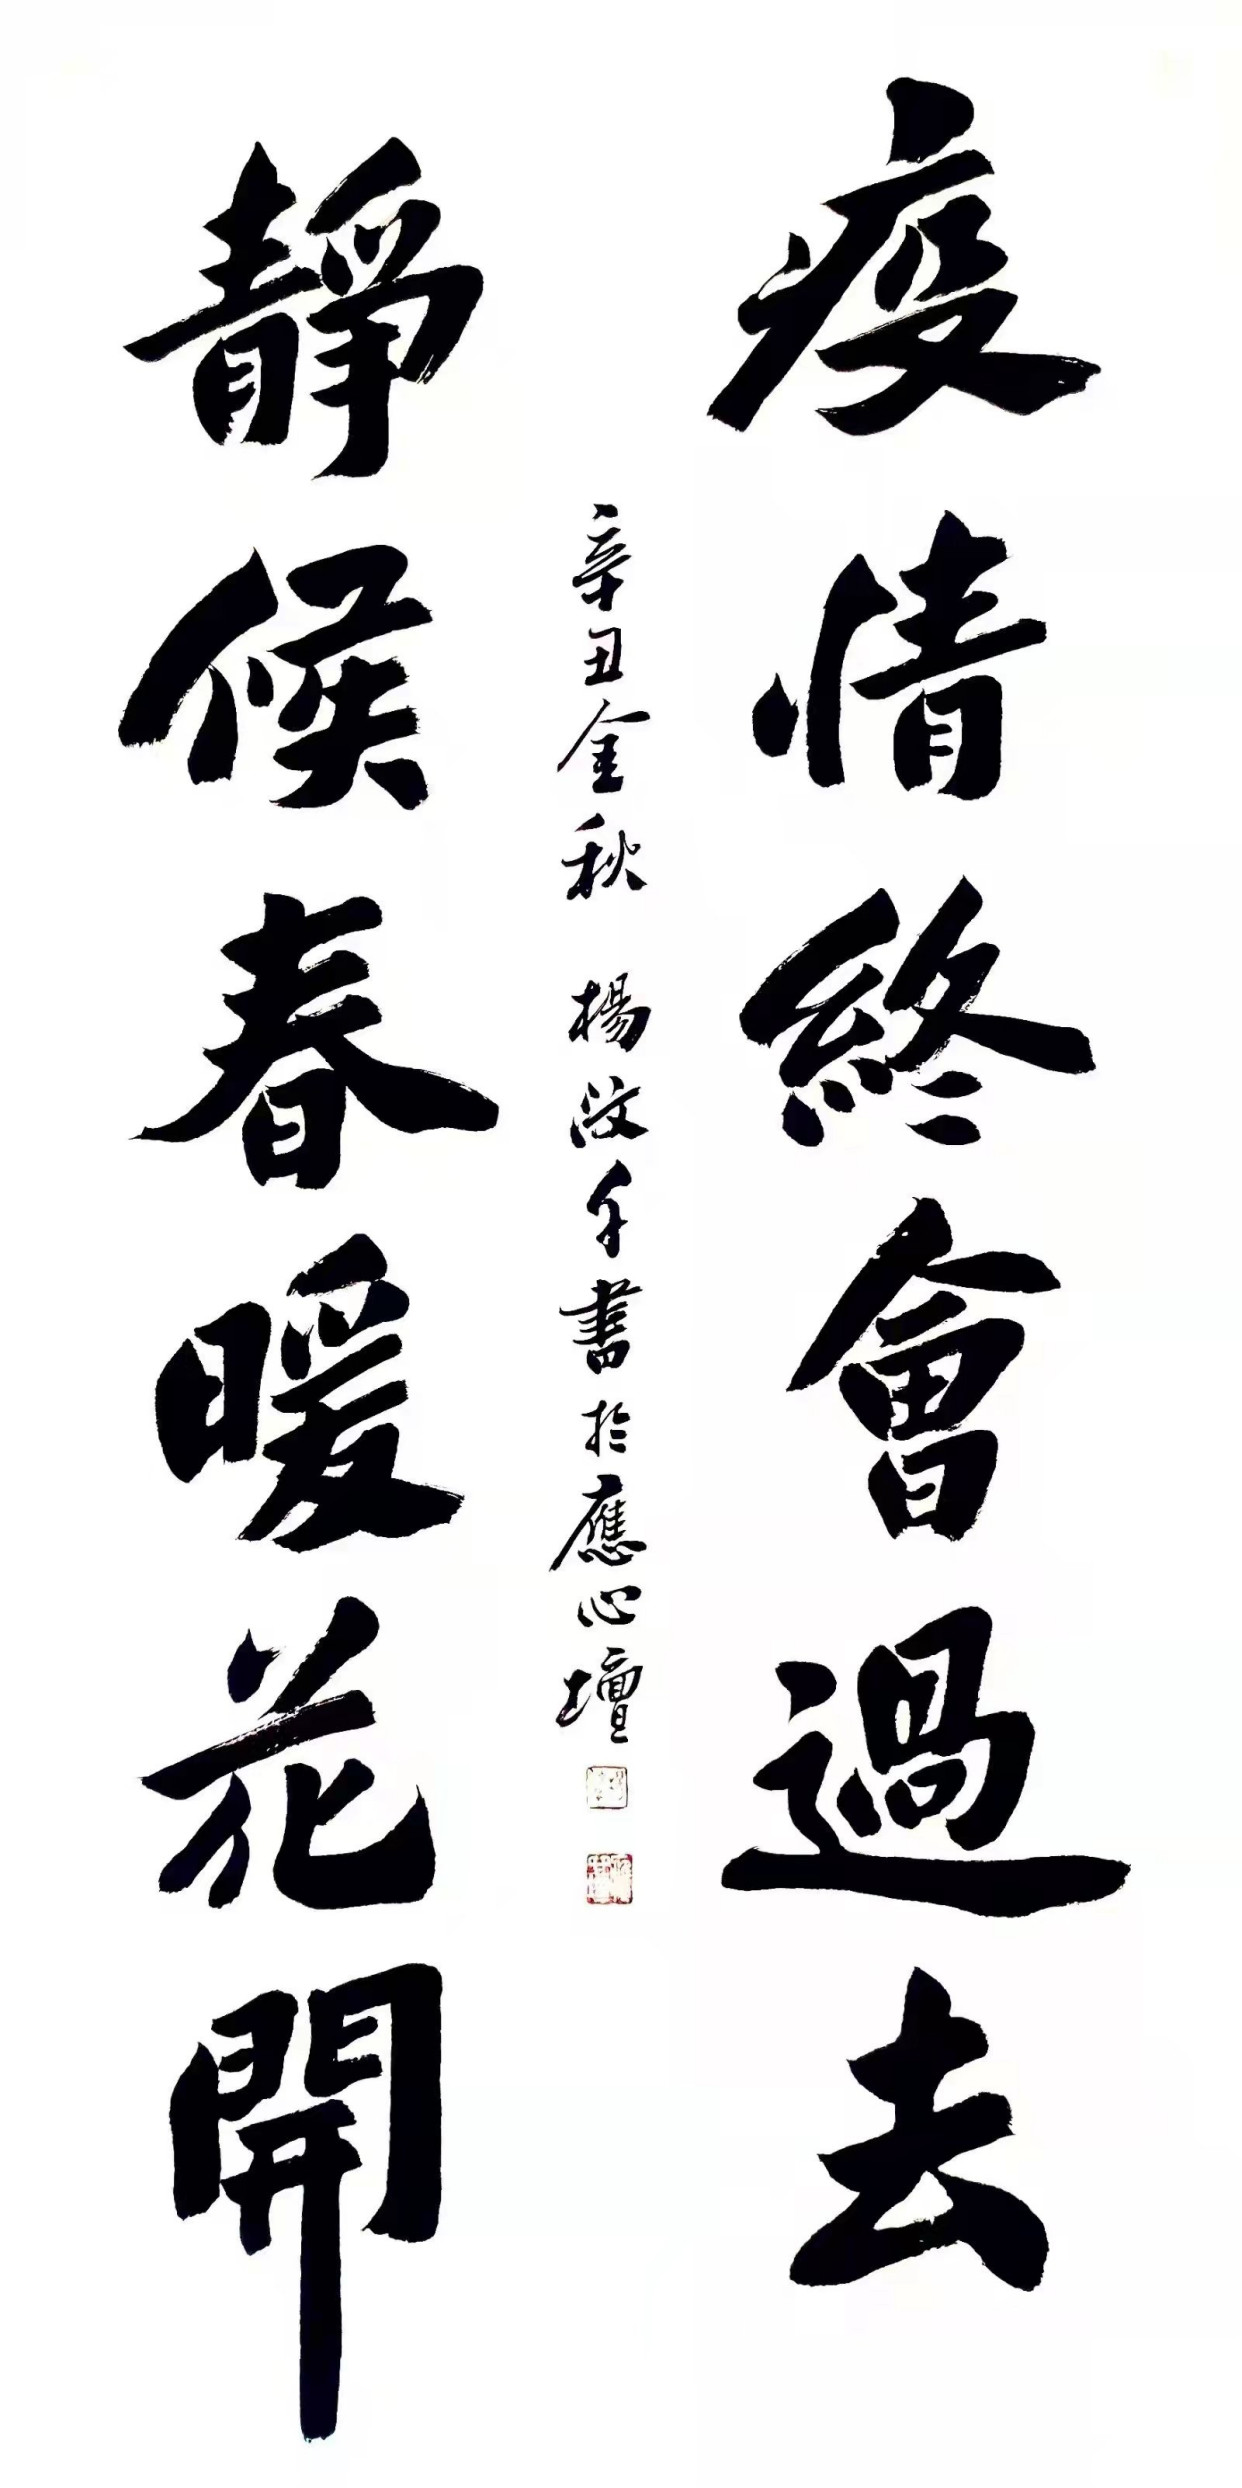 疫情終會過去
靜候春暖花開
辛丑金秋 楊汝午書於應心壇